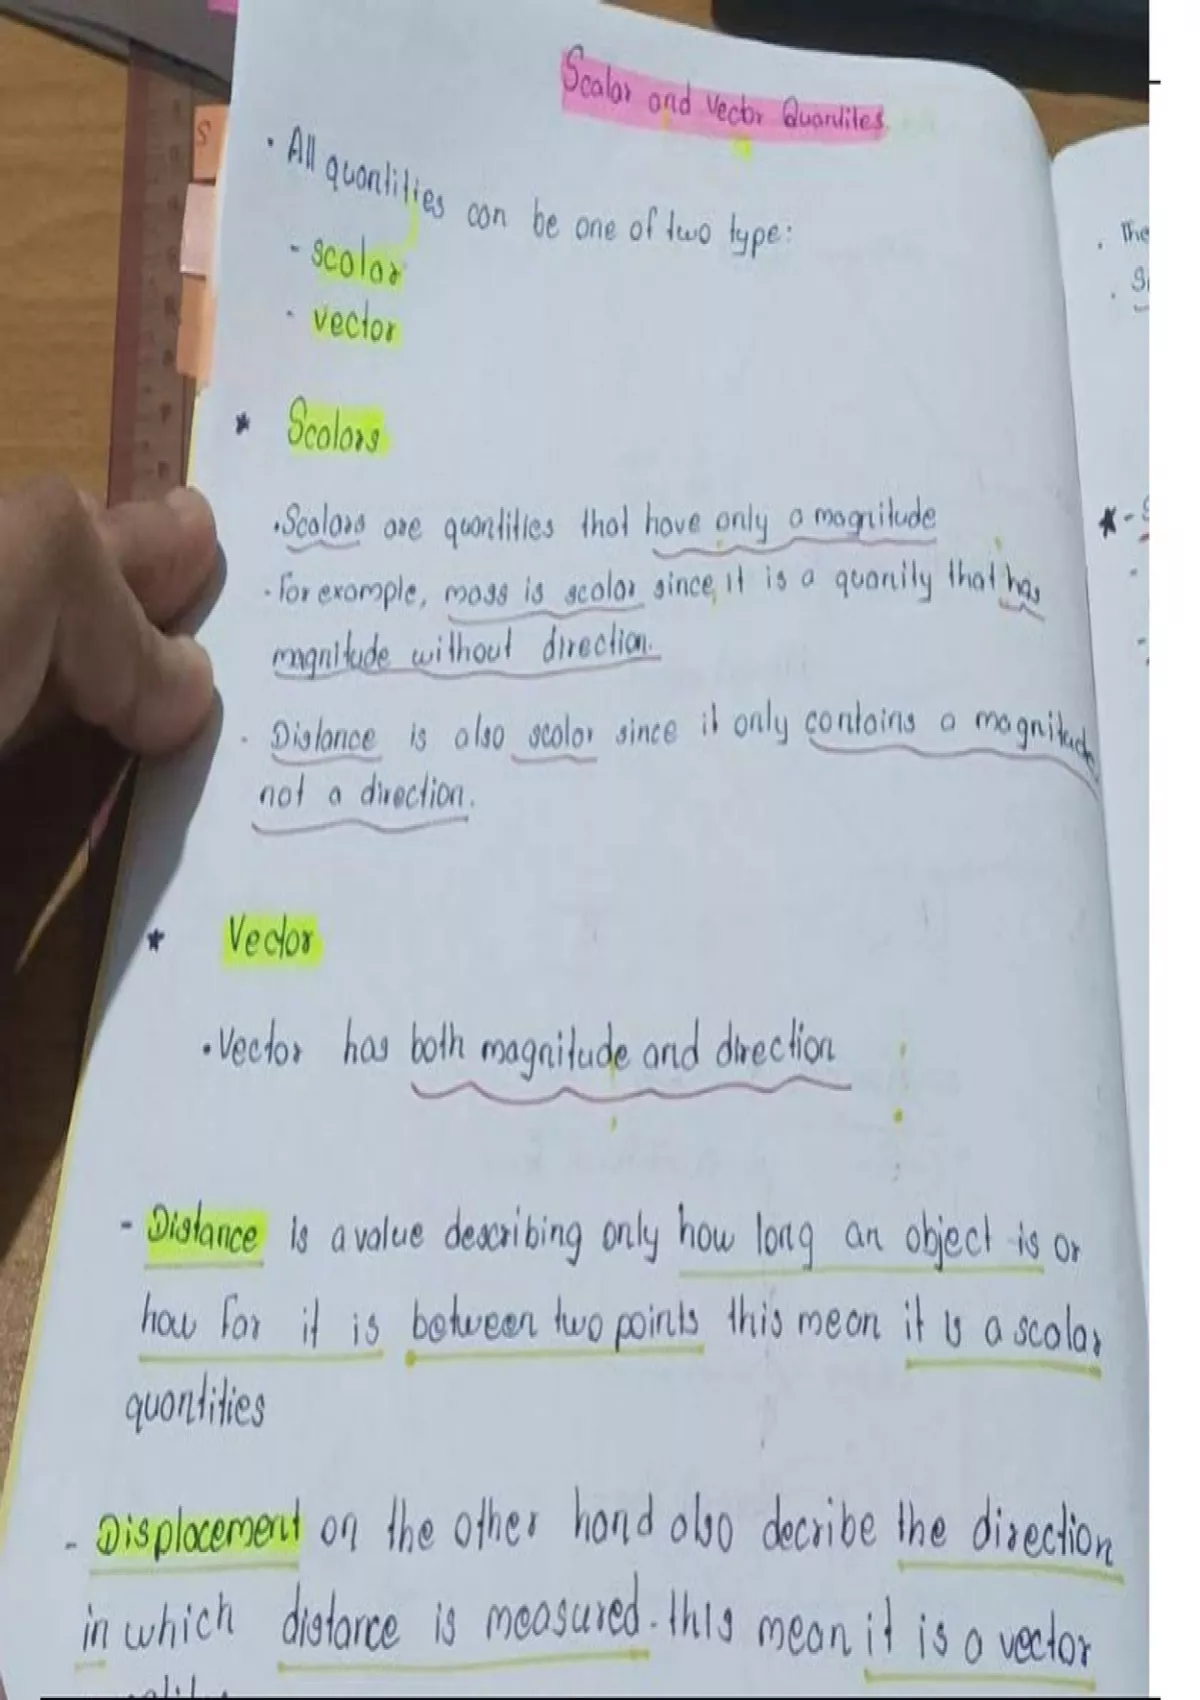 Scalar and Vector Quantites
S
• All quantities can be one of two type:
- scalar
- vector
* Scalars
• Scalars are quantities that have only a magnitude
• For example, mass is scalar since, it is a quanity that has
magnitude without direction.
• Distance is also scalar since it only contains a magnitude,
not a direction.
* Vector
• Vector has both magnitude and direction
- Distance is a value describing only how long an object is or
how far it is between two points this mean it is a scalar
quantities
- Displacement on the other hand also decribe the direction
in which distance is measured. this mean it is a vector
The